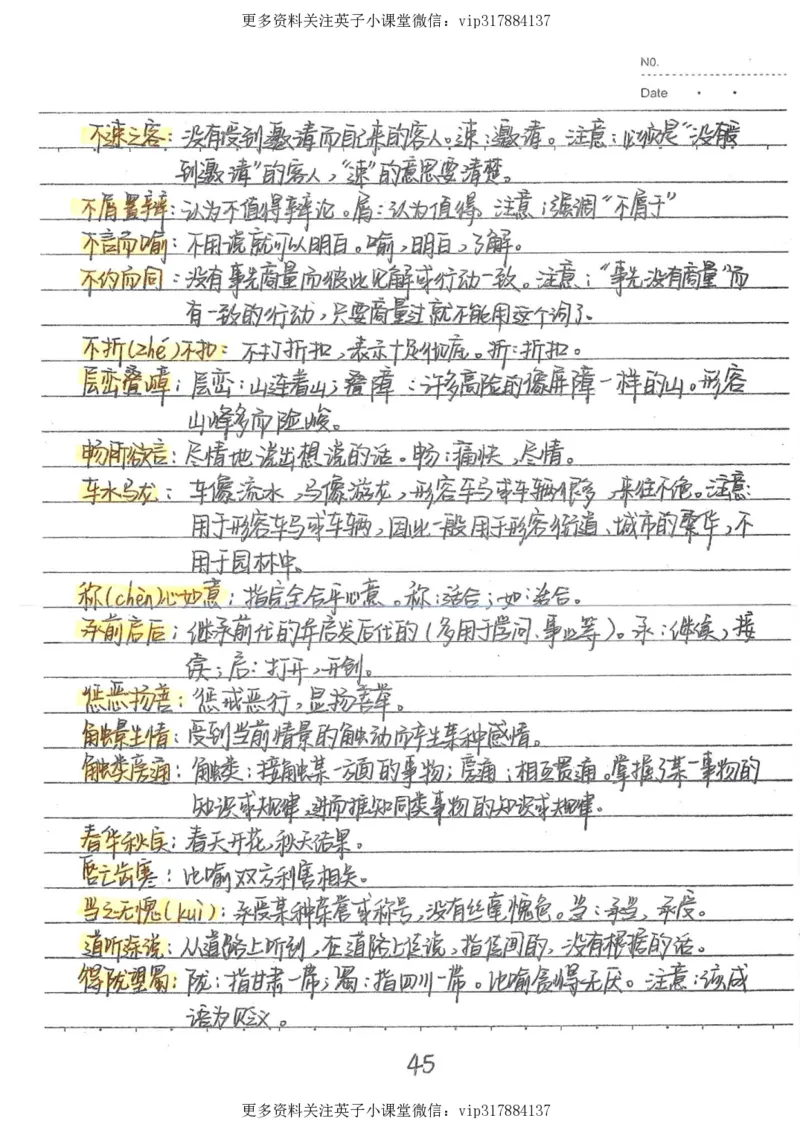 更多资料关注英子小课堂微信：vip317884137
NO.
Date
不速之客：没有受到邀请而自己来的客人。速：邀请。注意：必须是“没有受
到邀请”的客人，“速”的意思要清楚。
不屑置辩：认为不值得辩论。屑：认为值得。注意：强调“不屑于”
不言而喻：不用说就可以明白。喻，明白，了解。
不约而同：没有事先商量而彼此见解或行动一致。注意：“事先没有商量”而
有一致的行动，只要商量过就不能用这个词了。
不折(zhé)不扣：不打折扣，表示十足彻底。折：折扣。
层峦叠嶂：层峦：山连着山；叠障：许多高险的像屏障一样的山。形容
山峰多而险峻。
畅所欲言：尽情地说出想说的话。畅：痛快，尽情。
车水马龙：车像流水，马像游龙，形容车马或车辆很多，来往不绝。注意：
用于形容车马或车辆，因此一般用于形容街道、城市的繁华，不
用于园林中。
称(chèn)心如意：指完全合乎心意。称：适合；如：适合。
承前启后：继承前代的并启发后代的（多用于学问、事业等）。承：继续，接
续；启：打开，开创。
惩恶扬善：惩戒恶行，显扬善举。
触景生情：受到当前情景的触动而产生某种感情。
触类旁通：触类：接触某一方面的事物；旁通：相互贯通。掌握了某一事物的
知识或规律，进而推知同类事物的知识或规律。
春华秋实：春天开花，秋天结果。
唇亡齿寒：比喻双方利害相关。
当之无愧(kuì)：承受某种荣誉或称号，没有丝毫愧色。当：承当，承受。
道听途说：从道路上听到，在道路上述说，指传闻的，没有根据的话。
得陇望蜀：陇：指甘肃一带；蜀：指四川一带。比喻贪得无厌。注意：该成
语为贬义。
45
更多资料关注英子小课堂微信：vip317884137